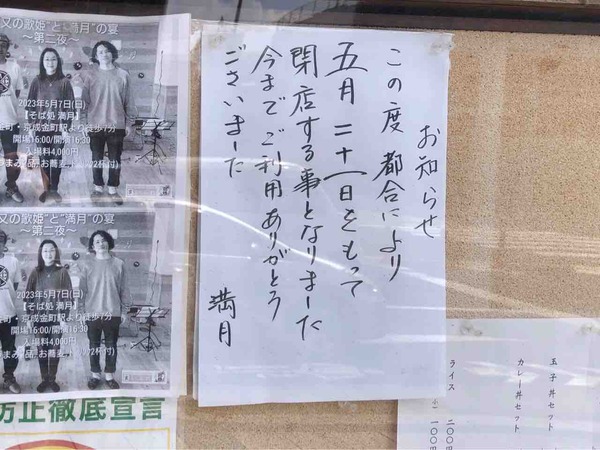 お知らせ
この度 都合により
五月二十一日をもって
閉店する事となりました
今までご利用ありがとう
ございました
満月
又の歌姫"と"満月"の宴
～第二夜～
2023年5月7日(日)
【そば処 満月】
金町・京成金町駅より徒歩7分
開場16:00/開演16:30
入場料4,000円
又の歌姫"と"満月"の宴
～第二夜～
2023年5月7日(日)
【そば処 満月】
金町・京成金町駅より徒歩7分
開場16:00/開演16:30
入場料4,000円
防止徹底宣言
玉子丼セット
カレー丼セット
ライス 二〇〇円
一〇〇円